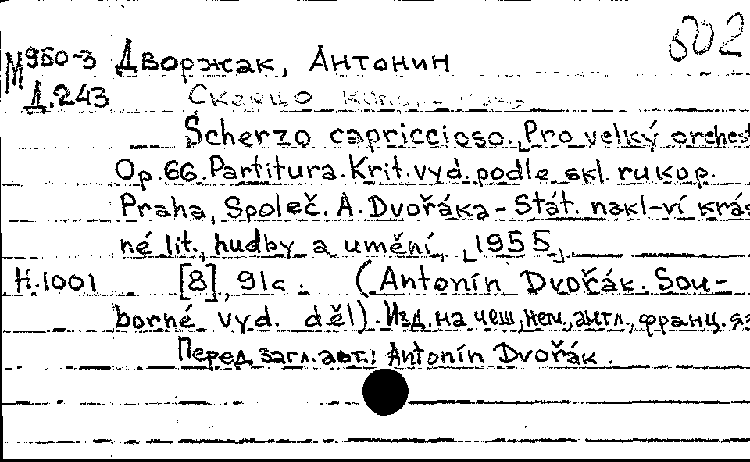 502
М950-3 Дворжак, Антонин
Д.243 Скерцо
Scherzo capriccioso. Pro velký orchest
Op.66. Partitura. Krit. vyd. podle skl. rukop.
Praha, Společ. A. Dvořáka - Stát. nakl-ví krás
né lit., hudby a umění, 1955
Н.1001 [8], 91с. (Antonín Dvořák. Sou-
borné vyd. děl). Изд. на чеш, нем, англ., франц. яз
Перед загл. авт.: Antonín Dvořák.